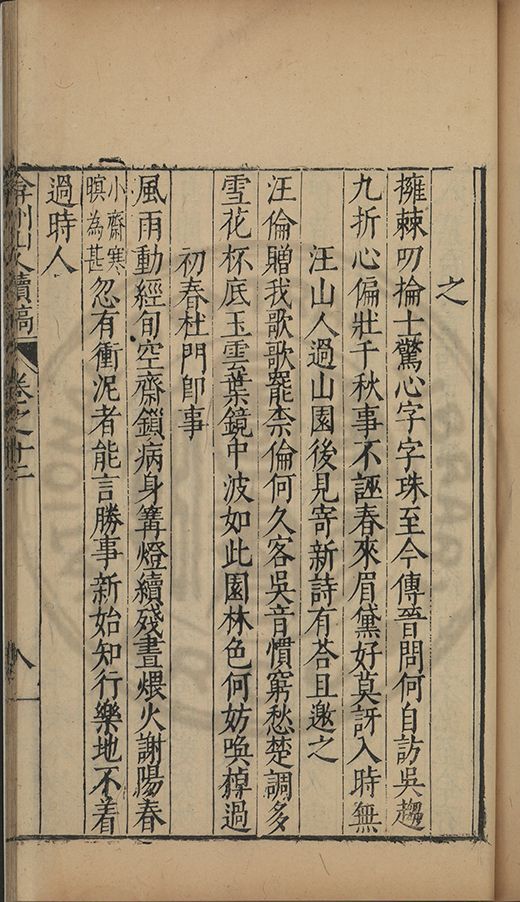 之
擁棘叨掄士驚心字字珠至今傳晉問何自訪吳趨
九折心偏壯千秋事不誣春來眉黛好莫訝入時無
汪山人過山園後見寄新詩有荅且邀之
汪倫贈我歌歌罷柰倫何久客吳音慣窮愁楚調多
雪花杯底玉雲葉鏡中波如此園林色何妨喚棹過
初春杜門卽事
風雨動經旬空齋鎖病身篝燈續殘晝煨火謝陽春
小齋寒暝為甚忽有衝泥者能言勝事新始知行樂地不着
過時人
弇州山人續稿 卷之十二 八